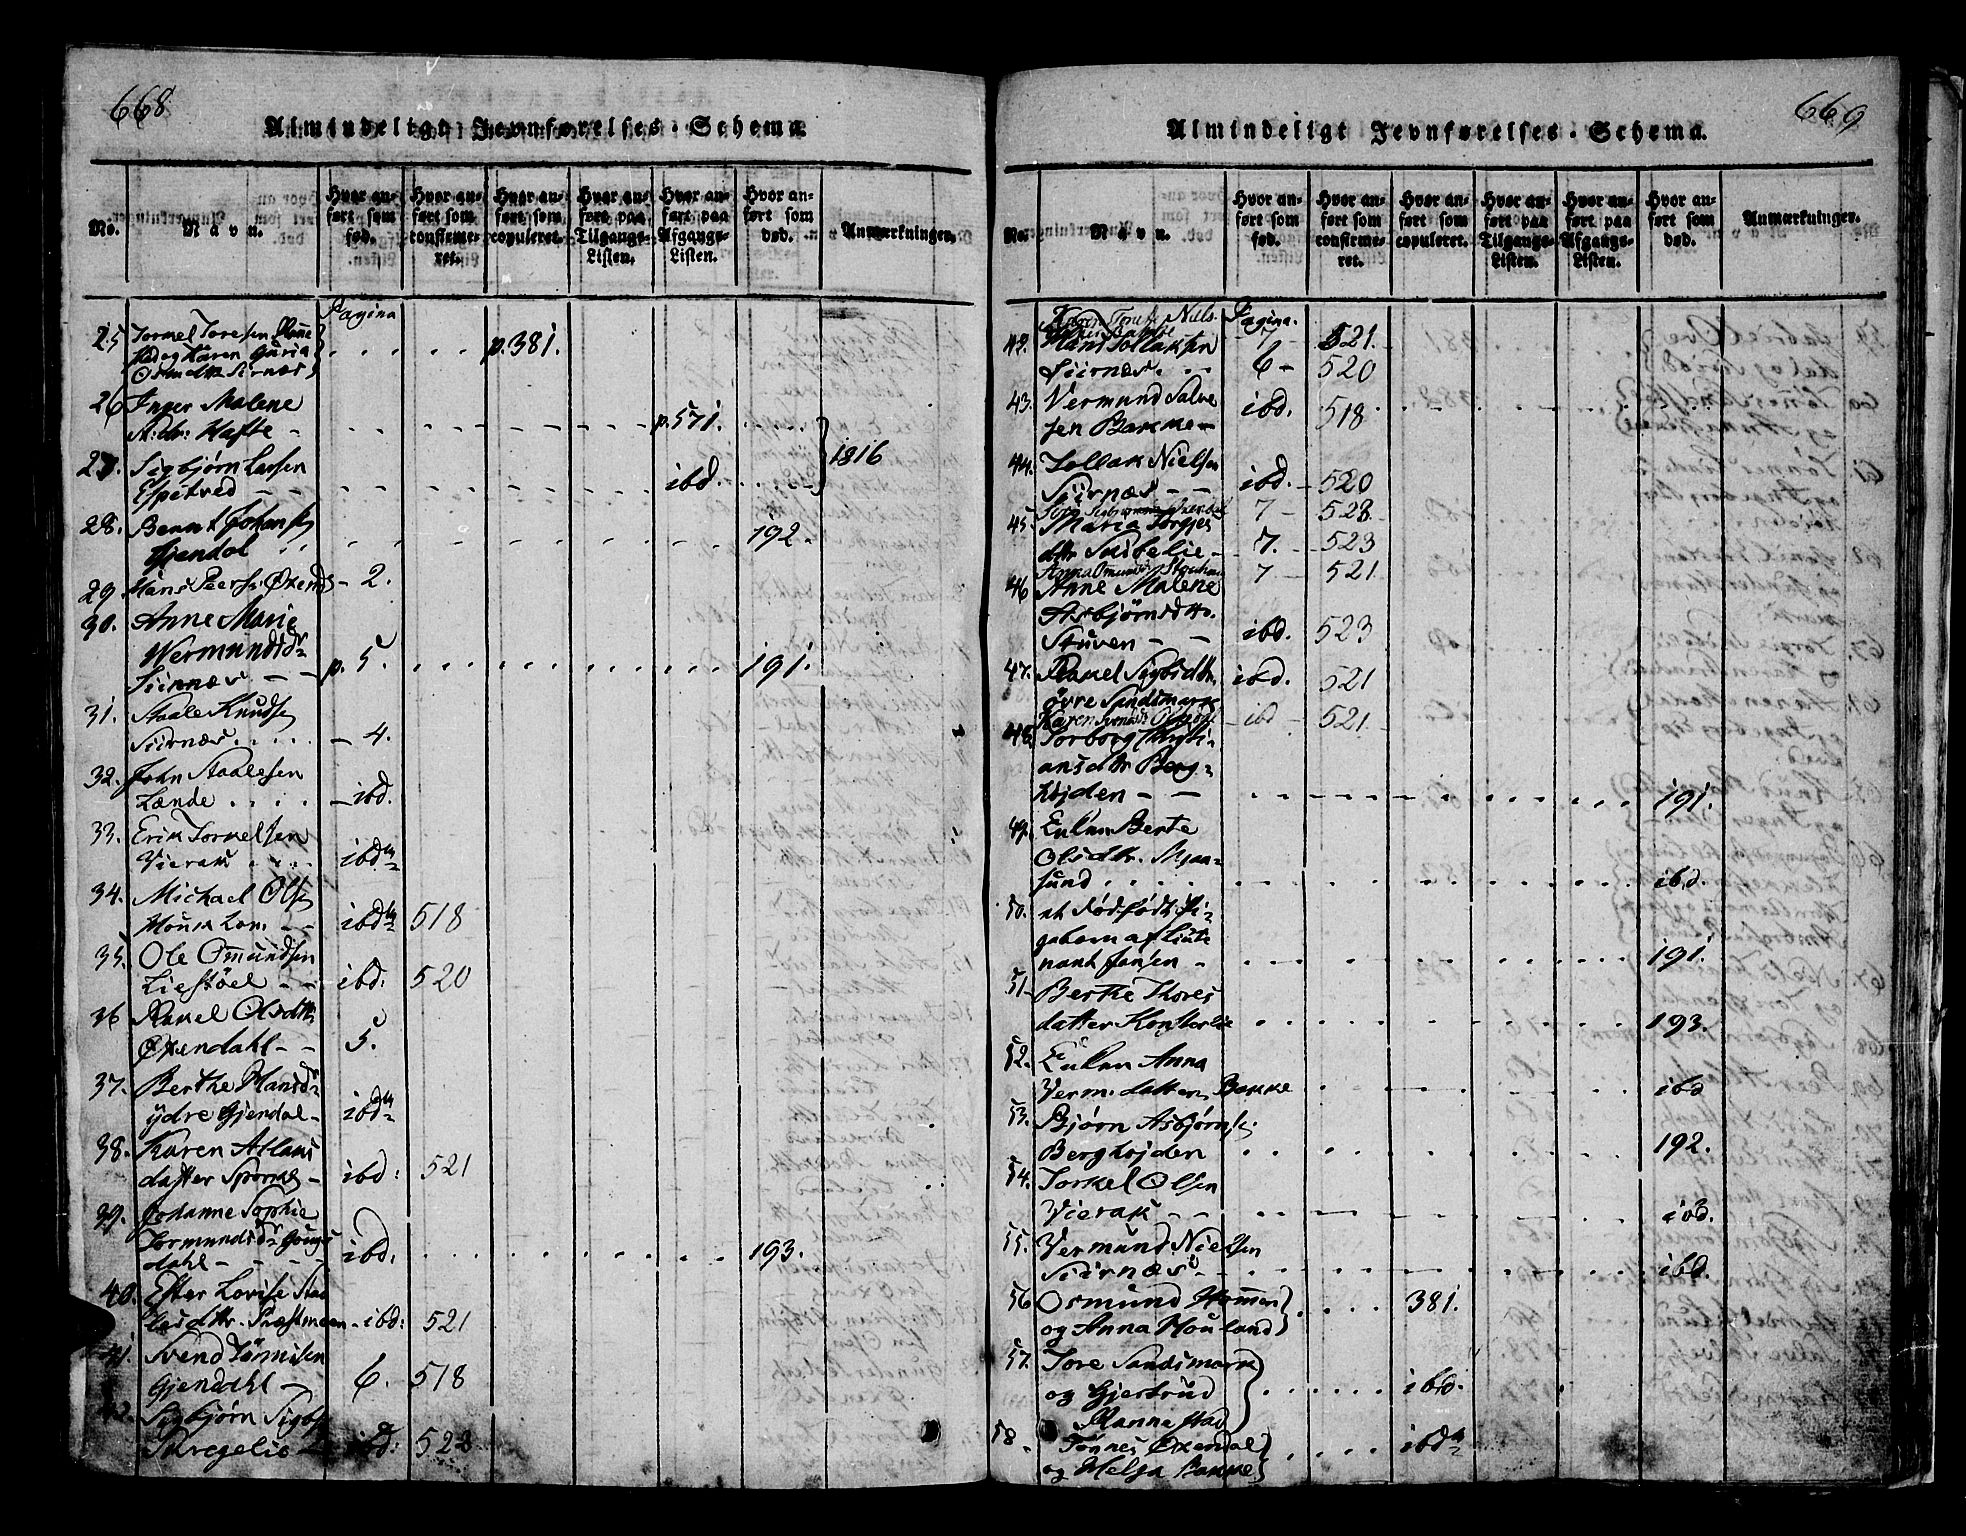 668
Almindeligt Jevnførelses-Schema
No.
Navn.
Hvor anført som fød.
Hvor anført som confirmeret.
Hvor anført som copuleret.
Hvor anført paa Tilgangs-Listen.
Hvor anført paa Afgangs-Listen.
Hvor anført som død.
Anmærkninger.
Pagina
25 Torkel Toresen
og Karen Guria p. 381.
Osmdtr Sirnæs
26 Inger Malene
Hafte p. 571.
27. Sigbjørn Larsen 1816
Espetved ibd.
28. Bernt Johans
Gjendal 192.
29 Hans Peers. Øxend. 2.
30. Anne Marie
Wermundsdr
Siirnæs p. 5. 191.
31. Staale Knuds
Siirnæs 4.
32. John Staalesen
Lænde ibd.
33. Erik Torkelsen
Vierak ibd
34. Michael Ols
ibd 518
35. Ole Omundsen
Liestöel ibd. 520
36 Rakel Olsdtr.
Øxendahl 5.
37. Berthe Hansd
ydre Gjendal ibd
38. Karen Atlaus
datter ibd: 521
39. Johanne Sophie
Tormundsdr
dahl ibd: 193.
40. Ester Lovise Staa
lesdtr. Præstmoen ibd: 521
41. Svend Tönnisen
Gjendahl 6. 518
42. Sigbjørn Sigbj
Skregelie ibd: 522
669
Almindeligt Jevnførelses-Schema.
No.
Navn.
Hvor anført som fød.
Hvor anført som confirmeret.
Hvor anført som copuleret.
Hvor anført paa Tilgangs-Listen.
Hvor anført paa Afgangs-Listen.
Hvor anført som død.
Anmærkninger.
Karen Niels Pagina.
7 521.
42. Hans Tollaksen
Siirnæs. 6 520
43. Vermund Salve
sen Bakke ibd. 518
44. Tollak Nielsen
Siirnæs ibd. 520
7 528
45. Maria Torgjes
dtr 7. 523
Anna Omunds 7 521
46 Anne Malene
Asbjørnsdtr.
Stuven ibd. 523
47. Rakel Sigbsdtr. ibd. 521
øvre Sandsmark
Karen Svends ibd 521
48. Torborg Christi-
ansdtr Berg-
höjden 191.
49. Eulen Berte
Olsdtr. Mjaa-
sund ibd.
50. et dödfödt Pi-
gebarn af Liute
nant Jansen 191.
51 Berthe Thores
datter 193.
52. Eulen Anna
Verm. datter Bakke ibd
53. Bjørn Asbjørns.
Berghöjden 192.
54. Torkel Olsen
Vierak ibd.
55. Vermund Nielsen
Siirnæs ibd.
56 Osmund Hommen 381.
og Anna Houland
57. Tore Sandsmark
og Gjertrud ibd.
Hanna
58. Tønnes Øxendal ibd
og Helga Bakke